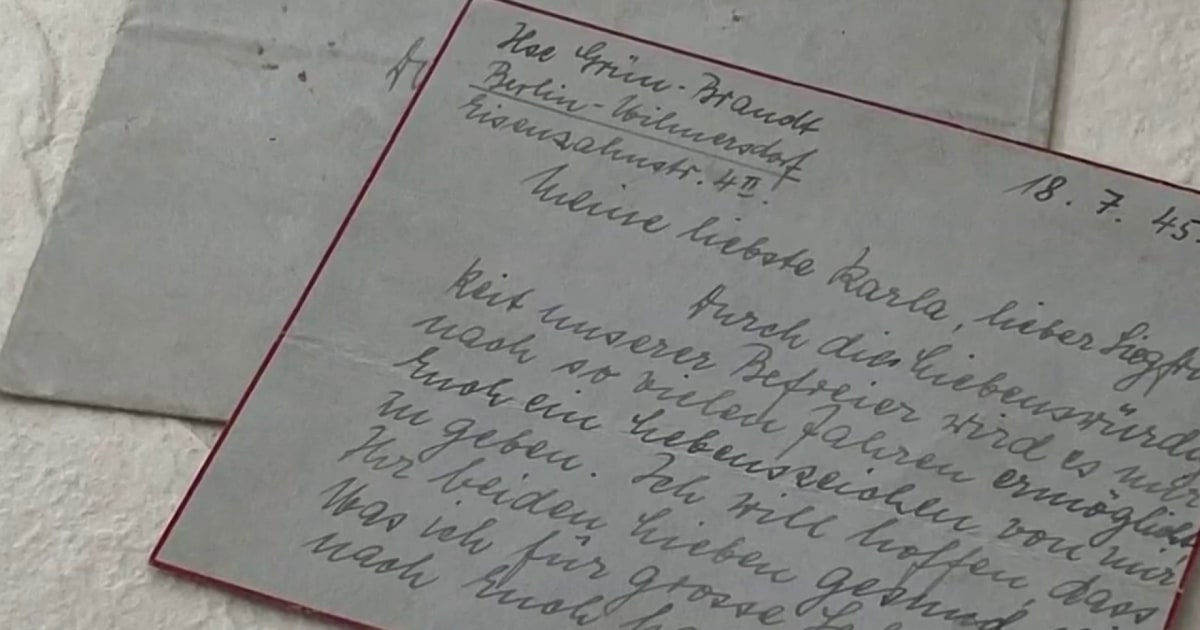 Ilse Grün-Brandt
Berlin-Wilmersdorf
Eisenzahnstr. 4 II.
18. 7. 45.
Meine liebste Karla, lieber
Durch die Liebenswürdig
keit unserer Befreier wird es mir
nach so vielen Jahren ermöglicht
Euch ein Lebenszeichen von mir
zu geben. Ich will hoffen, dass
Ihr beiden Lieben gesund
Was ich für grosse
nach Euch